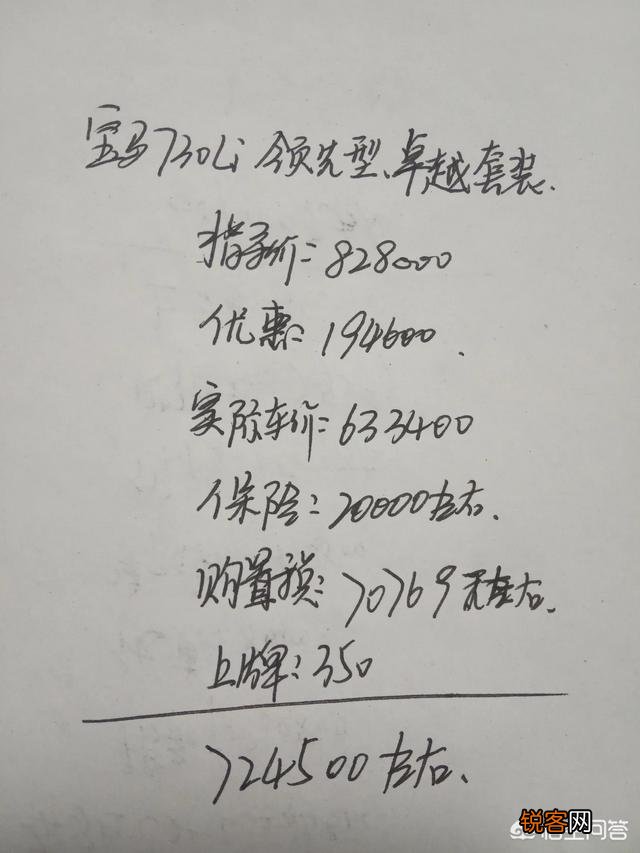 宝马730Li 领先型、卓越套装.
指导价:828000
优惠:194600.
实际车价:633400
保险:20000左右.
购置税:70769元左右.
上牌:350
724500左右.
锐客网
悟空问答